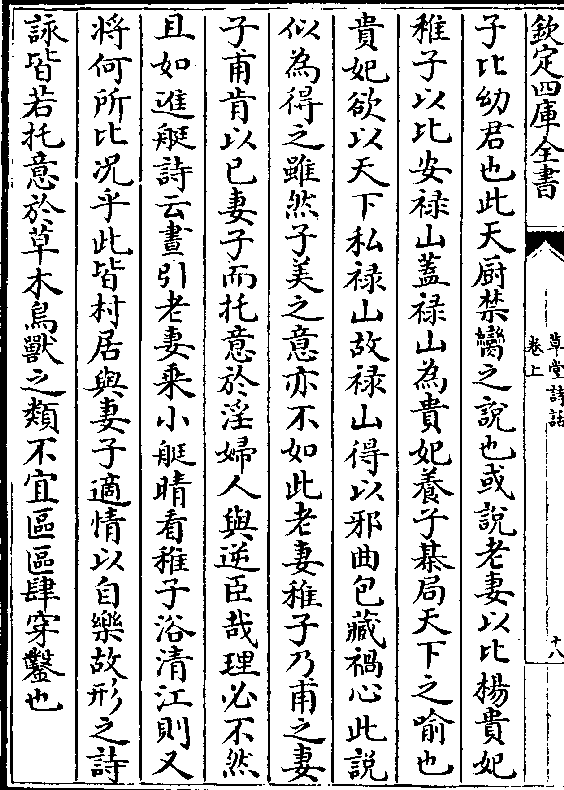 欽定四庫全書
草堂詩話
卷上
十八
子比幼君也此天厨禁臠之說也或說老妻以比楊貴妃
稚子以比安禄山蓋禄山為貴妃養子棊局天下之喻也
貴妃欲以天下私禄山故禄山得以邪曲包藏禍心此說
似為得之雖然子美之意亦不如此老妻稚子乃甫之妻
子甫肯以已妻子而托意於淫婦人與逆臣哉理必不然
且如進艇詩云晝引老妻乘小艇晴看稚子浴清江則又
將何所比况乎此皆村居與妻子適情以自樂故形之詩
詠皆若托意於草木鳥獸之類不宜區區肆穿鑿也